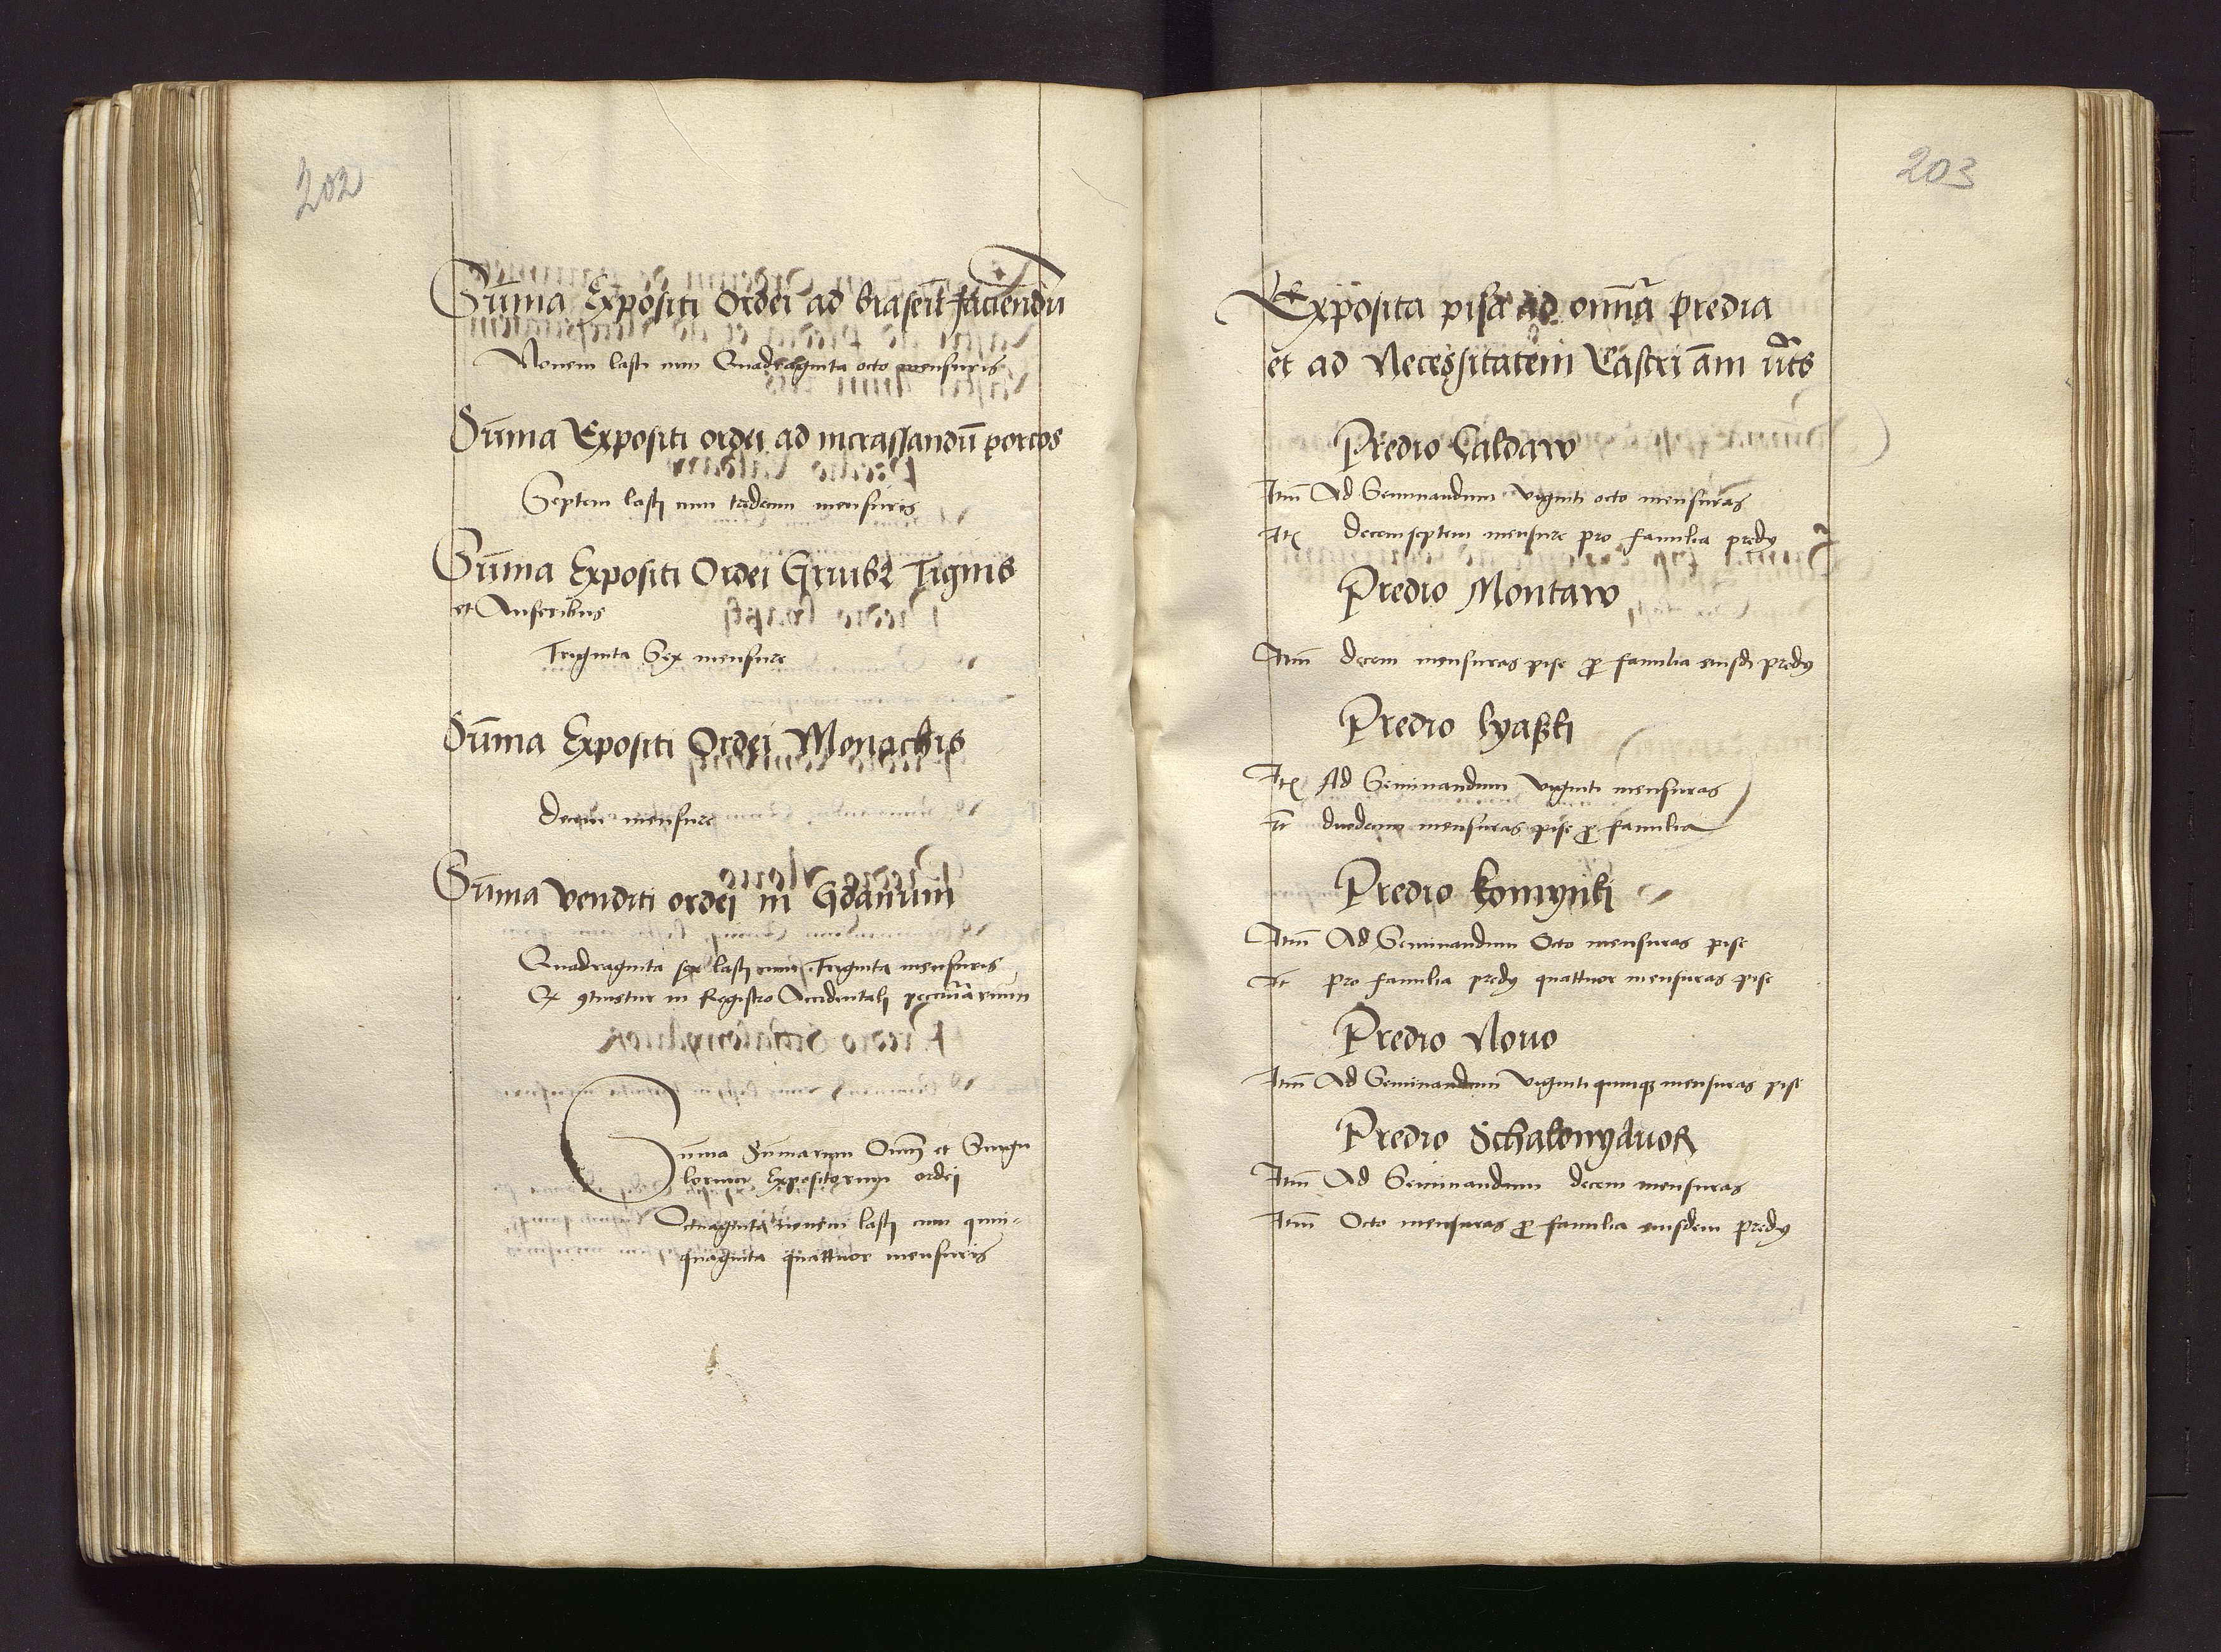 202
Suma Expositi Ordei ad braseu faciendu
Nouem lasti cum Quadraginta octo mensuris
Suma Expositi ordei ad incrassandu porcos
Septem lasti cum tredecim mensuris
Suma Expositi Ordei Gruibus Cignis
et Anseribus
Triginta Sex mensure
Suma Expositi Ordei Monachis
decem mensure
Suma venditi ordei in Gdanum
Quadraginta sex lasti cum Triginta mensuris
in Registro Accidentali pecuniarum
Suma Sumarum Omni et Singu
lorum Expositorum ordei
Octuaginta nouem lasti cum quin-
quaginta quattuor mensuris
203
Exposita pise ad omnia predia
et ad Necessitatem Castri
Predio Caldaw
Item Ad Seminandum viginti octo mensuras
Ite decemseptem mensure pro familia predy
Predio Montaw
Item decem mensuras pise p familia eiusd predy
Predio lyaszki
Ite Ad Seminandum viginti mensuras
It duodecim mensuras pise p familia
Predio komynki
Item Ad Seminandum Octo mensuras pise
It pro familia predy quattuor mensuras pise
Predio Nouo
Item Ad Seminandum viginti quinq mensuras pise
Predio Schalonyduor
Item Ad Seminandum decem mensuras
Item Octo mensuras p familia eiusdem predy